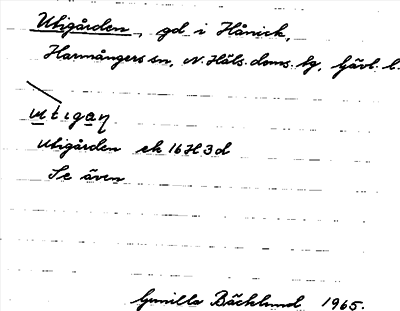 Utigården, gd i Hånick,
Harmångers sn, N. Häls. doms. bg, Gävl. l.
utigaɳ
Utigården ek 16H3d
Se även
Gunilla Bäcklund 1965.